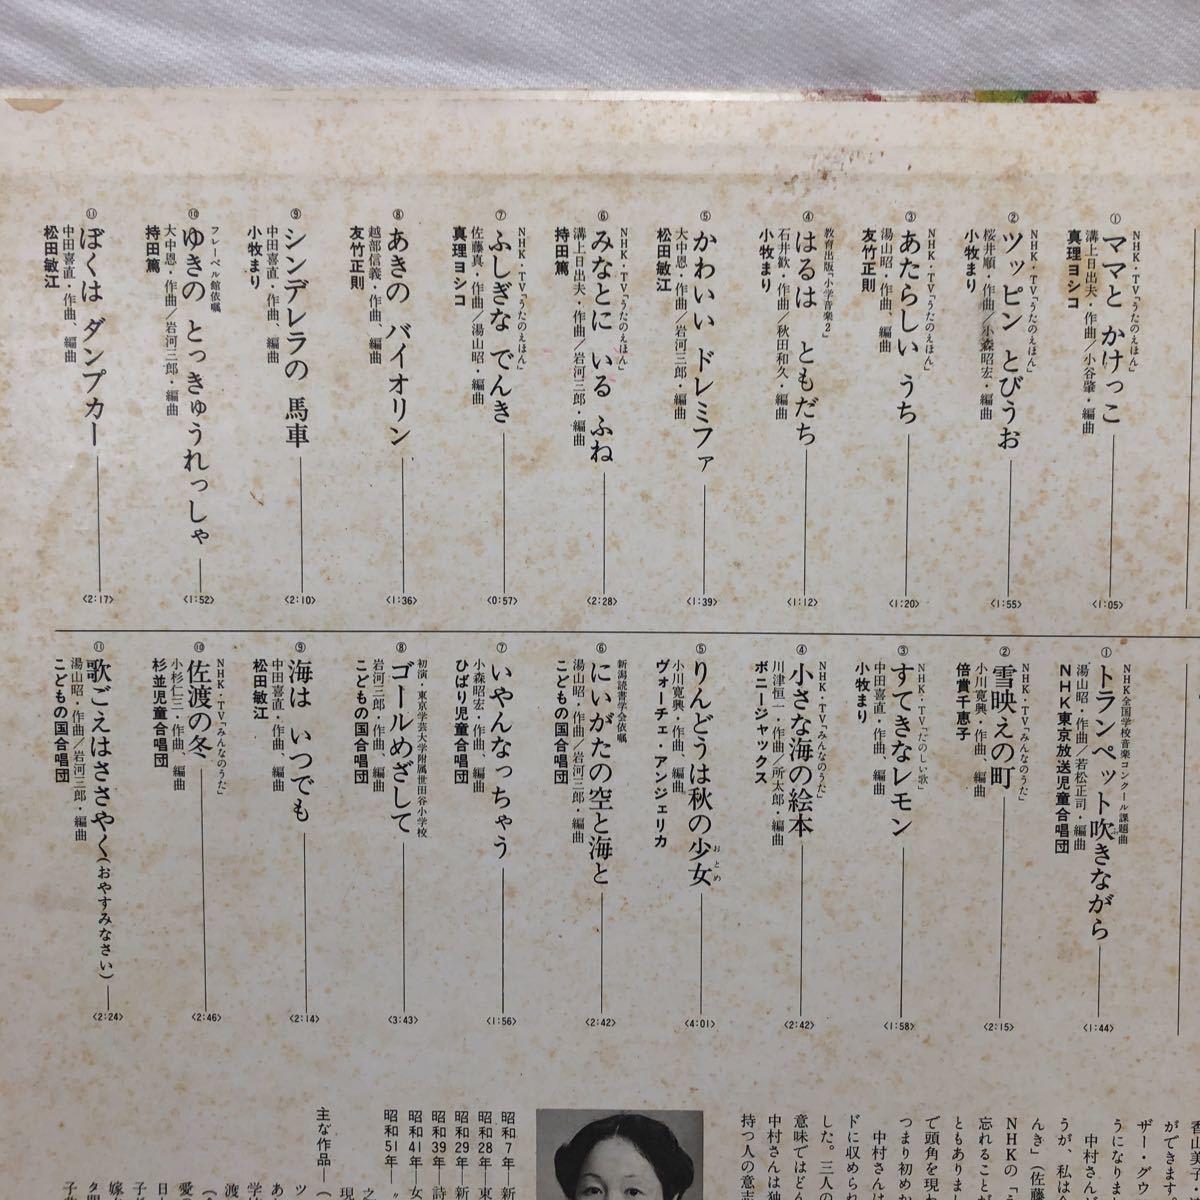 ①
NHK・TV「うたのえほん」
ママと かけっこ
溝上日出夫・作曲／小谷肇・編曲
真理ヨシコ
〈1:05〉
②
NHK・TV「うたのえほん」
ツッピン とびうお
桜井順・作曲／小森昭宏・編曲
小牧まり
〈1:55〉
③
NHK・TV「うたのえほん」
あたらしい うち
湯山昭・作曲、編曲
友竹正則
〈1:20〉
④
教育出版「小学音楽2」
はるは ともだち
石井歓・作曲／秋田和久・編曲
小牧まり
〈1:12〉
⑤
かわいい ドレミファ
大中恩・作曲／岩河三郎・編曲
松田敏江
〈1:39〉
⑥
NHK・TV「うたのえほん」
みなとに いる ふね
溝上日出夫・作曲／岩河三郎・編曲
持田篤
〈2:28〉
⑦
NHK・TV「うたのえほん」
ふしぎな でんき
佐藤真・作曲／湯山昭・編曲
真理ヨシコ
〈0:57〉
⑧
あきの バイオリン
越部信義・作曲、編曲
友竹正則
〈1:36〉
⑨
シンデレラの 馬車
中田喜直・作曲、編曲
小牧まり
〈2:10〉
⑩
フレーベル館依嘱
ゆきの とっきゅうれっしゃ
大中恩・作曲／岩河三郎・編曲
持田篤
〈1:52〉
⑪
ぼくは ダンプカー
中田喜直・作曲、編曲
松田敏江
〈2:17〉
①
NHK全国学校音楽コンクール課題曲
トランペット吹きながら
湯山昭・作曲／若松正司・編曲
NHK東京放送児童合唱団
〈1:44〉
②
NHK・TV「みんなのうた」
雪映えの町
小川寛興・作曲、編曲
倍賞千恵子
〈2:15〉
③
NHK・TV「たのしい歌」
すてきなレモン
中田喜直・作曲、編曲
小牧まり
〈1:58〉
④
NHK・TV「みんなのうた」
小さな海の絵本
川津恒一・作曲／所太郎・編曲
ボニージャックス
〈2:42〉
⑤
りんどうは秋の少女
おとめ
小川寛興・作曲、編曲
ヴォーチェ・アンジェリカ
〈4:01〉
⑥
新潟読書学会依嘱
にいがたの空と海と
湯山昭・作曲／岩河三郎・編曲
こどもの国合唱団
〈2:42〉
⑦
いやんなっちゃう
小森昭宏・作曲、編曲
ひばり児童合唱団
〈1:56〉
⑧
初演・東京学芸大学附属世田谷小学校
ゴールめざして
岩河三郎・作曲、編曲
こどもの国合唱団
〈3:43〉
⑨
海は いつでも
中田喜直・作曲、編曲
松田敏江
〈2:14〉
⑩
NHK・TV「みんなのうた」
佐渡の冬
小杉仁三・作曲、編曲
杉並児童合唱団
〈2:46〉
⑪
歌ごえはささやく（おやすみなさい）
湯山昭・作曲／岩河三郎・編曲
こどもの国合唱団
〈2:24〉
香山美子
ができます。
ザー・グウ
うになりま
中村さん
うが、私は
んき」（佐藤
NHKの「
忘れること
ともありま
で頭角を現わ
つまり初めか
中村さんは
ドに収められ
した。三人の
意味ではどん
中村さんは独
持つ人の意志
昭和7年 新
昭和28年 東
昭和29年 新
昭和39年 詩
昭和41年 女
昭和51年 "
之
現
主な作品─（
ツ
あ
学
渡
（